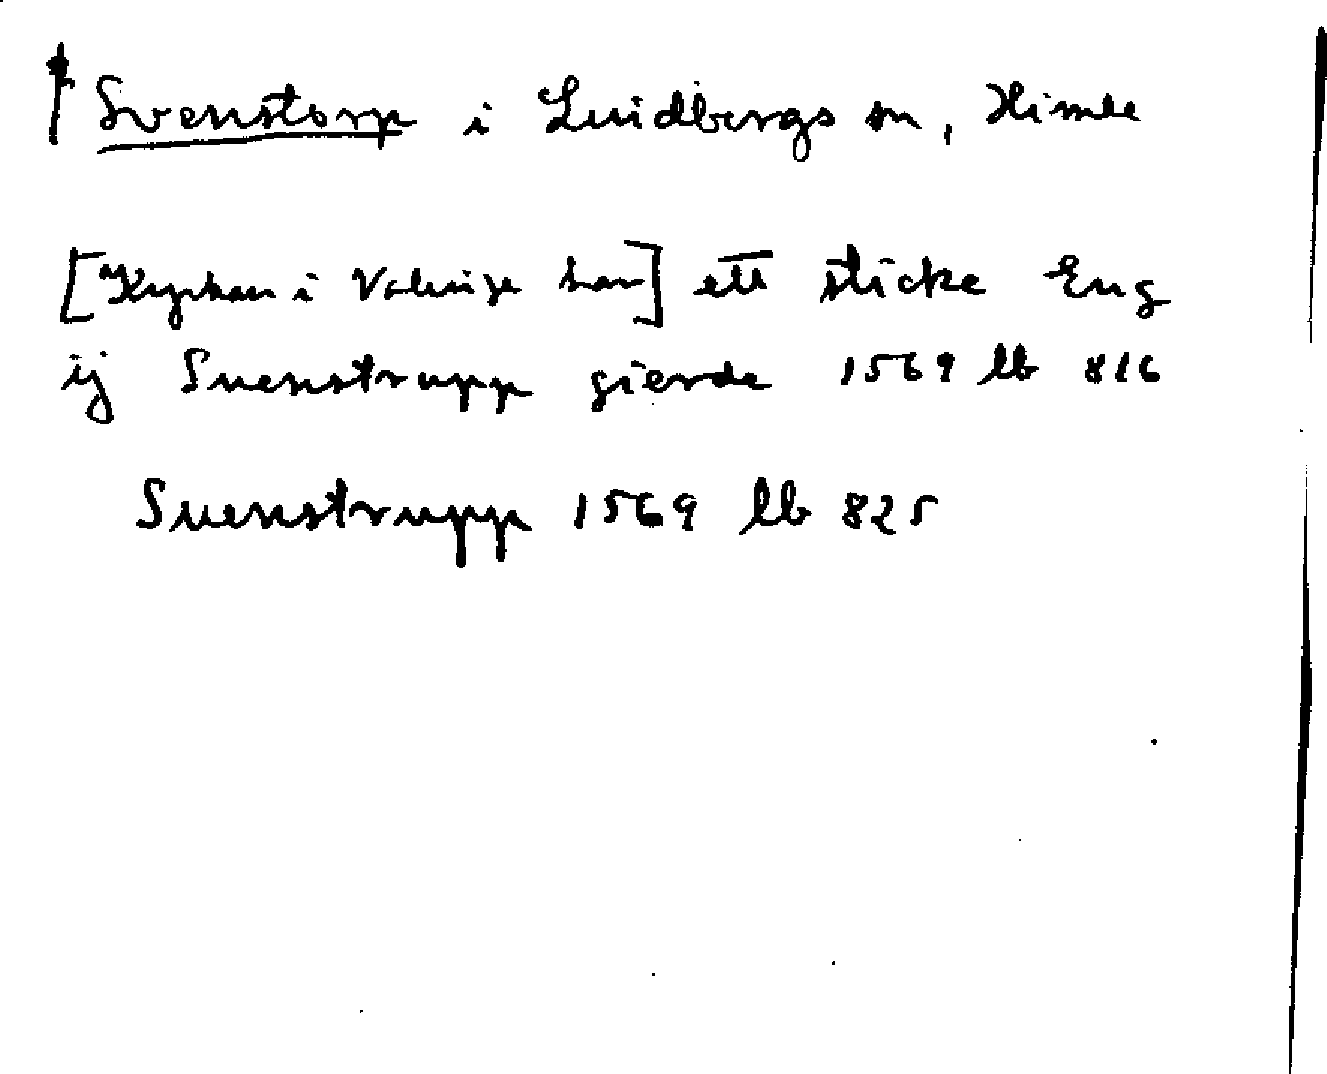 † Svenstorp i Lindbergs sn, Himle
["Kyrkan i Valinge har] ett sticke Eng
ij Suenstrupp gierde 1569 lb 816
Suenstrupp 1569 lb 825